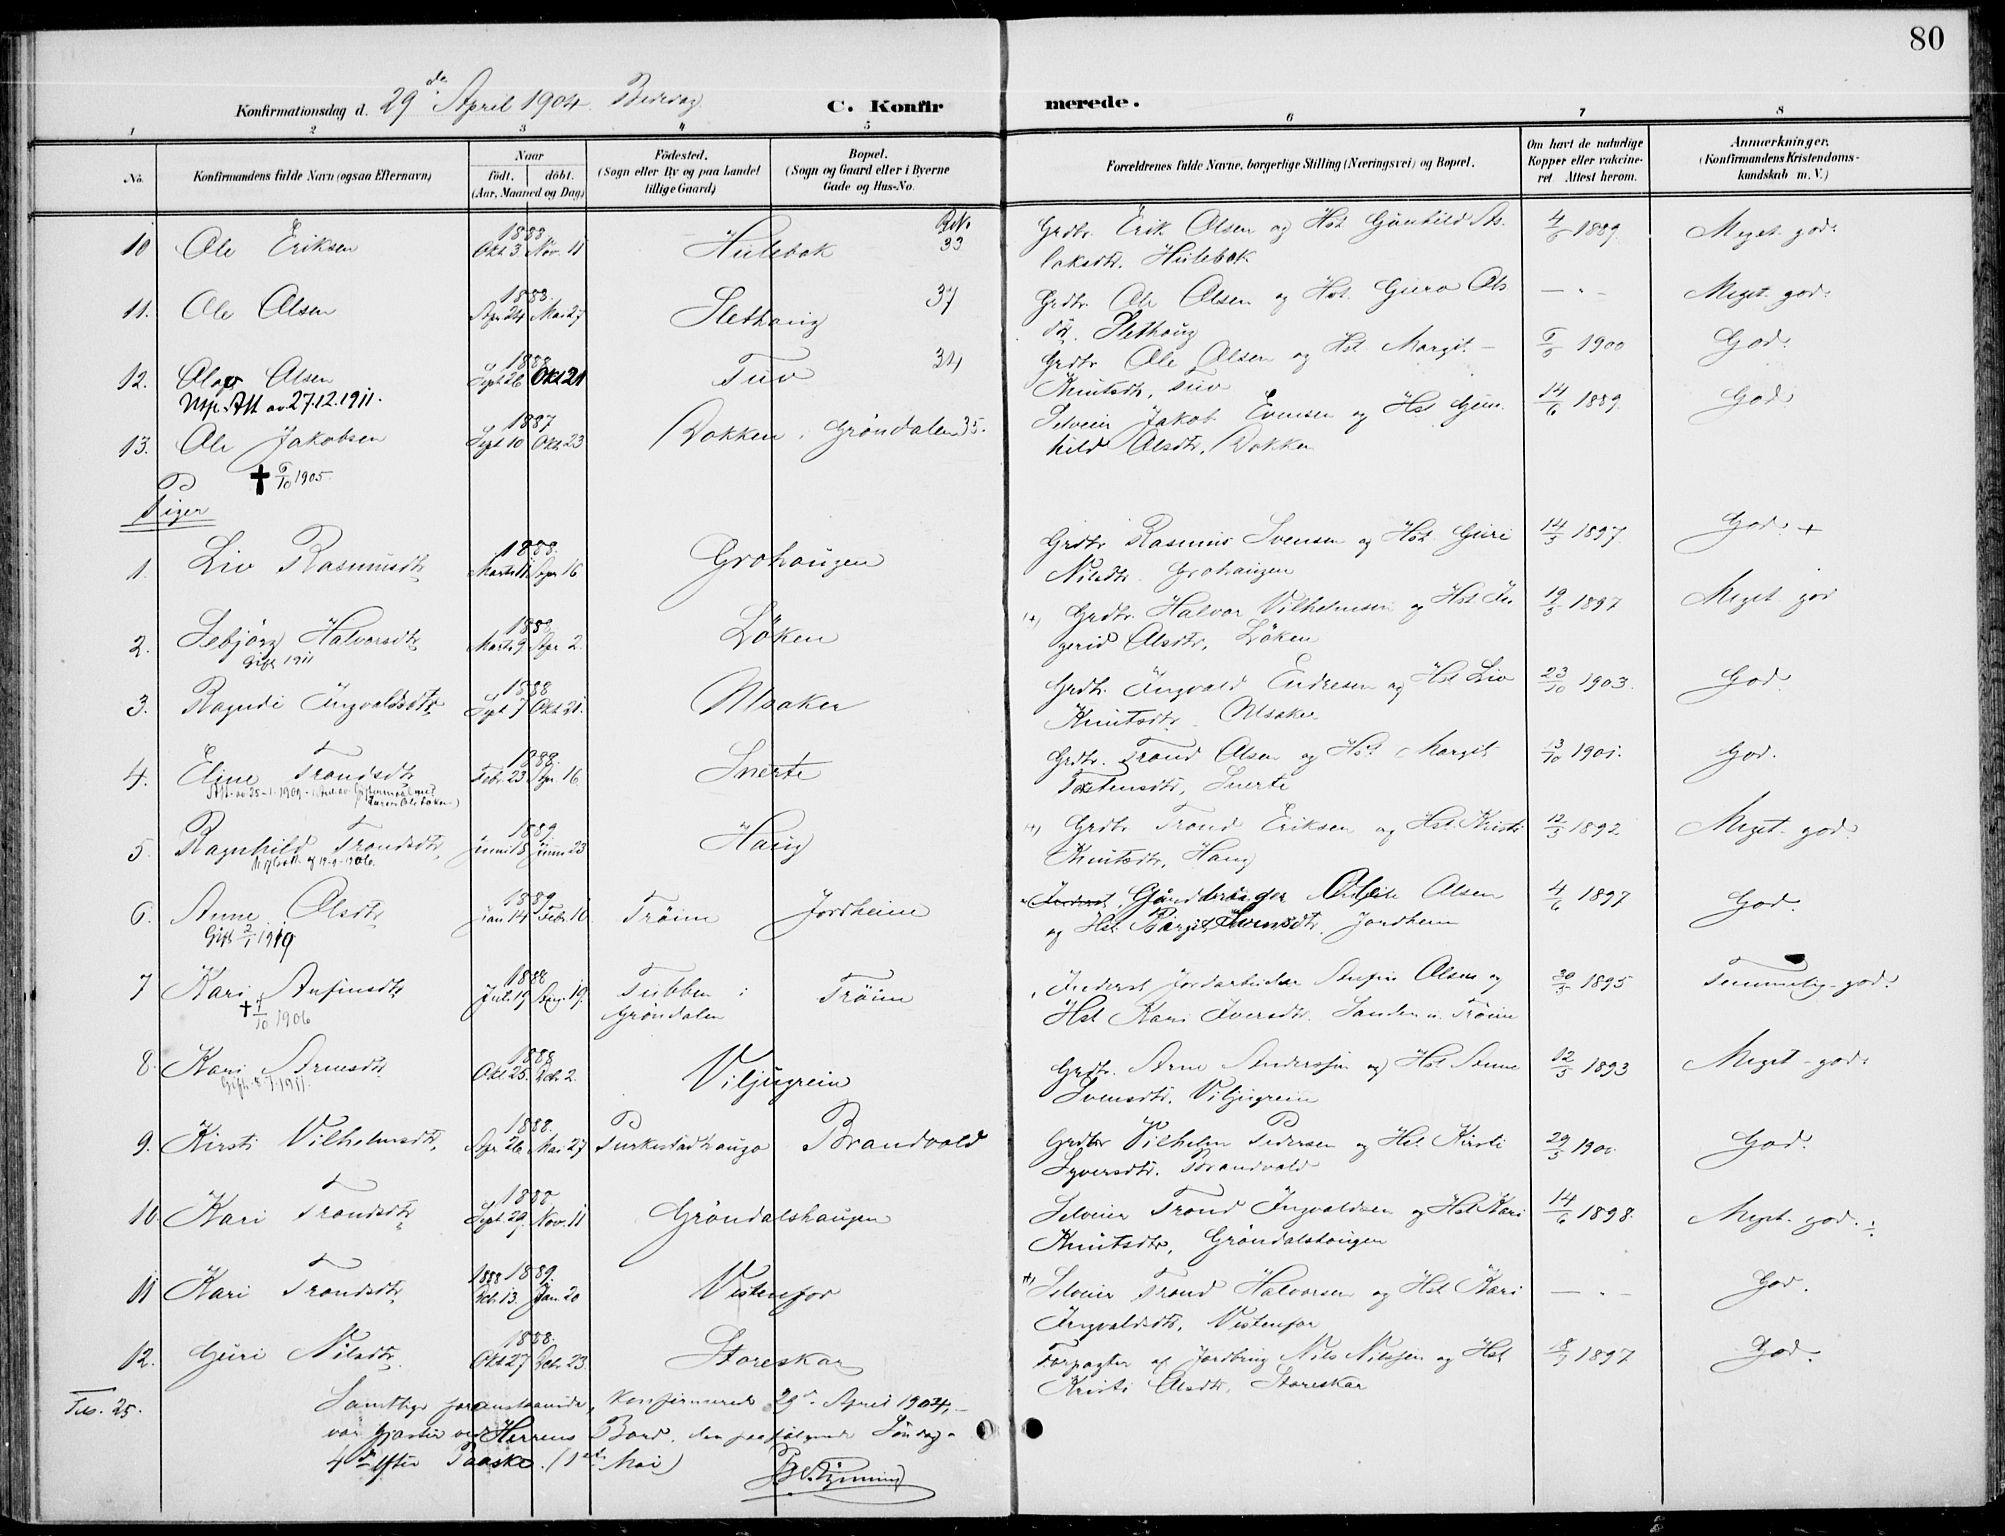 80
Konfirmationsdag d. 29de April 1904. Bededag
C. Konfirmerede.
1 2 3 4 5 6 7 8
No. Konfirmandens fulde Navn (ogsaa Efternavn) Naar födt. döbt. (Aar, Maaned og Dag) Födested. (Sogn eller By og paa Landet tillige Gaard) Bopæl. (Sogn og Gaard eller i Byerne Gade og Hus-No. Forældrenes fulde Navne, borgerlige Stilling (Næringsvei) og Bopæl. Om havt de naturlige Kopper eller vakcineret Attest herom. Anmærkninger. (Konfirmandens Kristendomskundskab m. V.)
10 Ole Eriksen 1888 Okt. 3 Nov. 11 Hulebak 33 Grdbr. Erik Olsen og Hst Gunhild As- 4/6 1889. Meget god.
laksdtr. Hulebak
11. Ole Olsen 1888. Apr 24 Mai 27 Slethaug 37 Grdbr. Ole Olsen og Hst. Guro Ols- — " — Meget god.
dtr. Slethaug
12. Olav Olsen 1888 Sept 26 Okt 21 Tuv 34 Grdbr Ole Olsen og Hst Margit 1900 God.
Utsk. Att av 27.12.1911. Knutsdtr, Tuv
13. Ole Jakobsen 1887 Sept 10 Okt. 23 Dokken, Gröndalen 35. Selveier Jakob Evensen og Hst Gun- 14/6 1889. God
hild Olsdtr, Dokken
✝ 6/10 1905.
Piger
1. Liv Rasmusdtr 1888. Marts 11 Apr 16 Grohaugen Grdbr Rasmus Svensen og Hst Guri 14/5 1897. God. +
Nilsdtr. Grohaugen
2. Sebjörg Halvorsdtr 1888 Marts 9 Apr 2. Löken Grdbr. Halvor Vilhelmsen og Hst In- 19/5 1897 Meget god
Gift 1911 gerid Olsdtr, Löken
3. Ragndi Ingvaldsdtr 1888 Sept 7 Okt 21. Ulsaker Grdbr. Ingvald Endresen og Hst Liv 23/10 1903. God.
Knutsdtr. Ulsaker
4. Eline Trondsdtr 1888. Febr. 23 Apr. 16. Snerte Grdbr. Trond Olsen og Hst Margit 13/10 1901. God.
Torstensdtr, Snerte
5. Ragnhild Trondsdtr 1889. Juni 18 Juni 23 Haug Grdbr Trond Eriksen og Hst Kristi 12/5 1892. Meget god.
19-9-1906. Knutsdtr, Haug
6. Anne Olsdtr 1889 Jan 14 Febr. 10 Tröim Jordheim Inderst, Gaardbruger Ole Olsen 4/6 1897 God.
Gift 2/1 1919 og Hst Birgit Svensdtr, Jordheim
7 Kari Anfinsdtr 1888 Juli 19 Aug. 19. Tubben i Gröndalen Tröim Inderst Jordarbeider Anfin Olsen og 20/5 1895 Temmelig god.
✝ 7/10 1906 Hst Kari Iversdtr. Sanden u. Tröim
8. Kari Arnesdtr 1888 Okt 25. Dcbr. 2. Viljugrein Grdbr. Arne Andersen og Hst Anne 12/5 1893 Meget god.
Gift 8.7.1911. Svensdtr. Viljugrein
9. Kirsti Vilhelmsdtr. 1888. Apr 26 Mai 27 Purkestadhaugo Brandvold Grdbr Vilhelm Pedersen og Hst Kirsti 29/5 1900. God.
Syversdtr. Brandvold
10. Kari Trondsdtr 1888 Sept. 29. Nov. 11 Gröndalshaugen Selveier Trond Ingvaldsen og Hst Kari 14/6 1898. Meget god.
Knutsdtr, Gröndalshaugen
11 Kari Trondsdtr 1888 1889. Dcb. 13. Jan. 20 Vistenfor Selveier Trond Halvorsen og Hst Kari — " — God.
Ingvaldsdtr, Vistenfor
12. Guri Nilsdtr. 1888. Okt 27 Dcbr. 23. Storeskar Forpagter af Jordbrug Nils Nilssen og Hst 8/7 1897 God.
Kristi Olsdtr, Storeskar
Tils. 25.
Samtlige foranstaaende, konfirmerede 29de April 1904, –
var Gjæster ved Herrens Bord, den paafølgende Söndag –
4de efter Paaske. (1ste Mai)